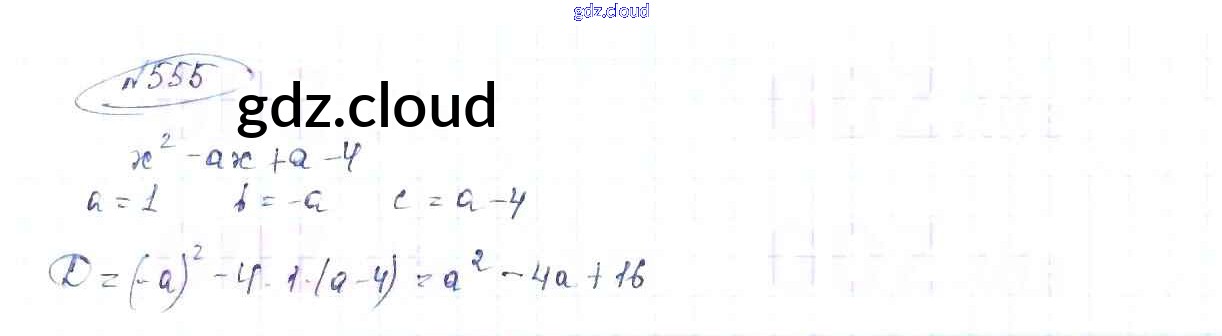 gdz.cloud
№555
gdz.cloud
x² - ax + a - 4
a = 1 b = -a c = a - 4
D = (-a)² - 4 · 1 · (a - 4) = a² - 4a + 16